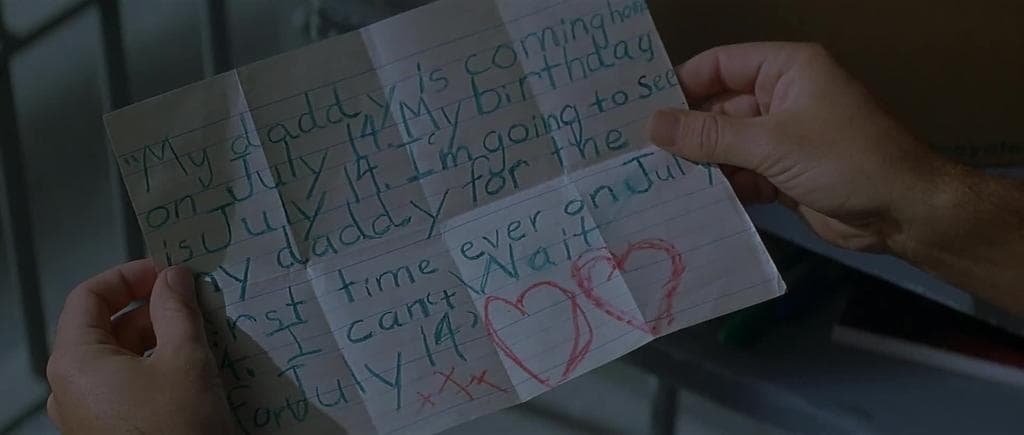 "My daddy is coming home
on July 14. My birthday
is July 14. I'm going to see
my daddy for the
first time ever on July
14. I can't Wait
for July 14,
xxx